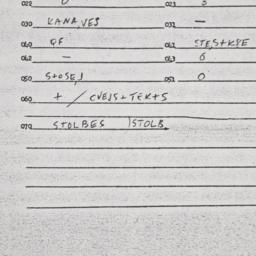 022 0 023
030 KANA,VES 032 —
040 QF 041 STE,S+KPE
042 — 043 6
050 S+OSE,J 051 0
060 + / CVEJS+TEK+S
070 STOLBES )STOLB.